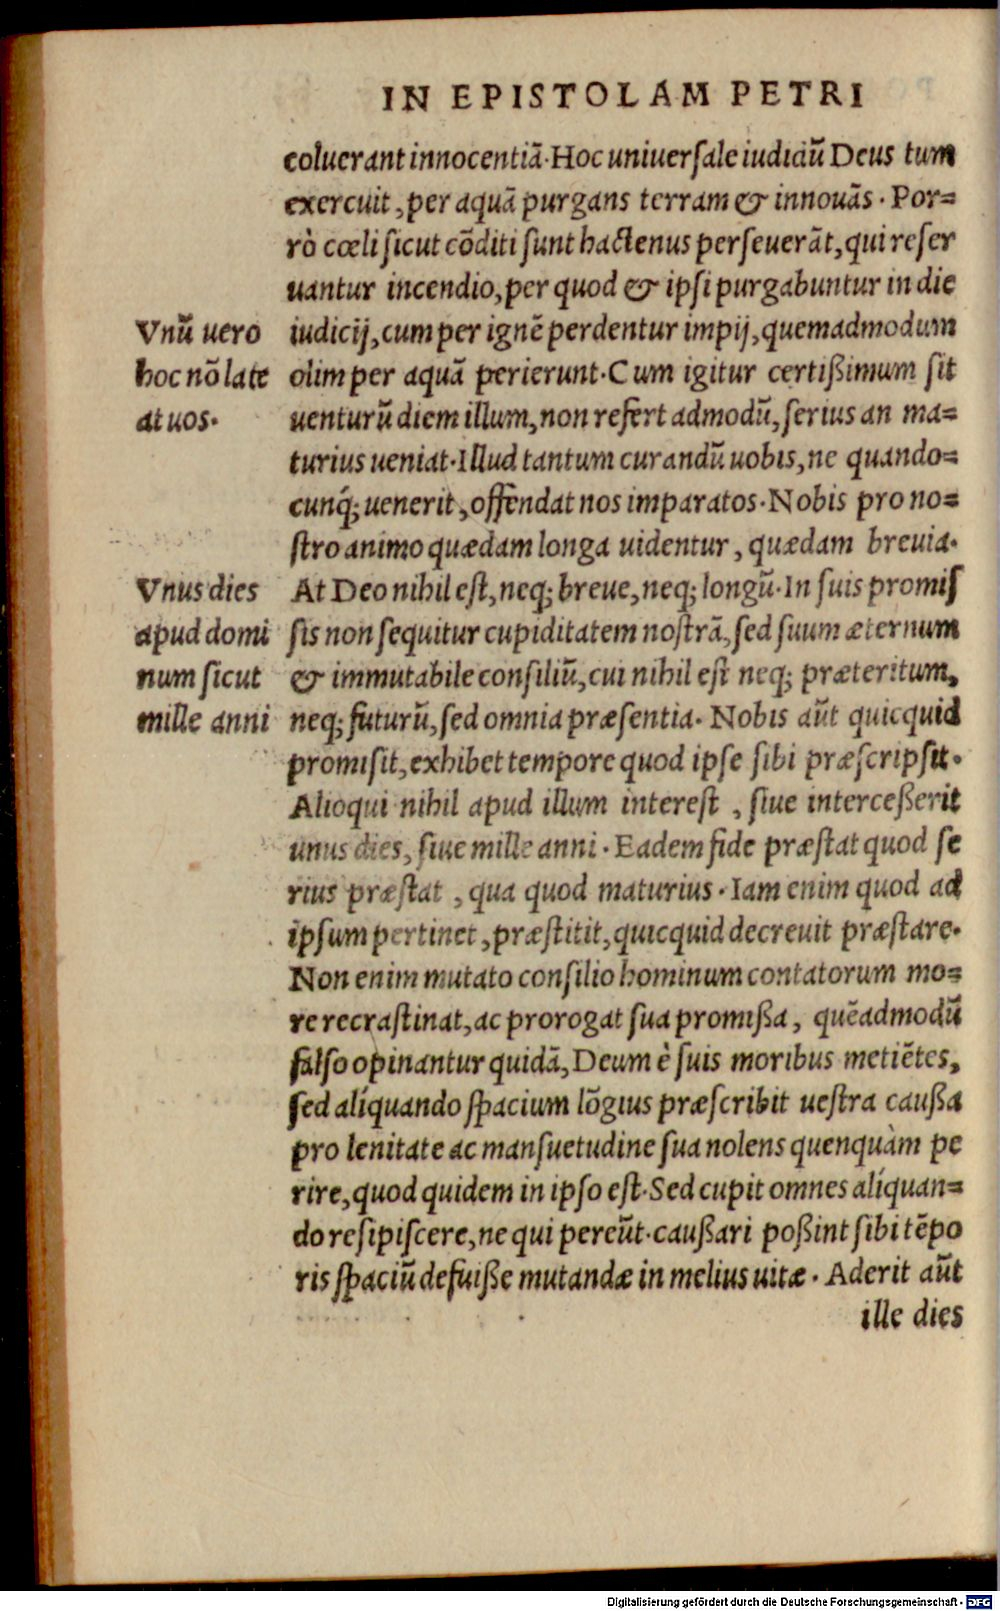 IN EPISTOLAM PETRI
coluerant innocentiã. Hoc uniuersale iudiciũ Deus tum
exercuit, per aquã purgans terram & innouãs. Por=
rò cœli sicut cõditi sunt hactenus perseuerãt, qui reser
uantur incendio, per quod & ipsi purgabuntur in die
Vnũ uero
hoc nõ late
at uos.
iudicij, cum per ignẽ perdentur impij, quemadmodum
olim per aquã perierunt. Cum igitur certißimum sit
uenturũ diem illum, non refert admodũ, serius an ma=
turius ueniat. Illud tantum curandũ uobis, ne quando=
cunq́; uenerit, offendat nos imparatos. Nobis pro no=
stro animo quædam longa uidentur, quædam breuia.
Vnus dies
apud domi
num sicut
mille anni
At Deo nihil est, neq; breue, neq; longũ. In suis promis
sis non sequitur cupiditatem nostrã, sed suum æternum
& immutabile consiliũ, cui nihil est neq; præteritum,
neq; futurũ, sed omnia præsentia. Nobis aũt quicquid
promisit, exhibet tempore quod ipse sibi præscripsit.
Alioqui nihil apud illum interest, siue interceßerit
unus dies, siue mille anni. Eadem fide præstat quod se
rius præstat, qua quod maturius. Iam enim quod ad
ipsum pertinet, præstitit, quicquid decreuit præstare.
Non enim mutato consilio hominum contatorum mo=
re recrastinat, ac prorogat sua promißa, quẽadmodũ
falso opinantur quidã, Deum è suis moribus metiẽtes,
sed alíquando spacium lõgius præscribit uestra caußa
pro lenitate ac mansuetudine sua nolens quenquàm pe
rire, quod quidem in ipso est. Sed cupit omnes alíquan=
do resipiscere, ne qui pereũt. caußari poßint sibi tẽpo
ris spaciũ defuiße mutandæ in melius uitæ. Aderit aũt
ille dies
Digitalisierung gefördert durch die Deutsche Forschungsgemeinschaft - DFG